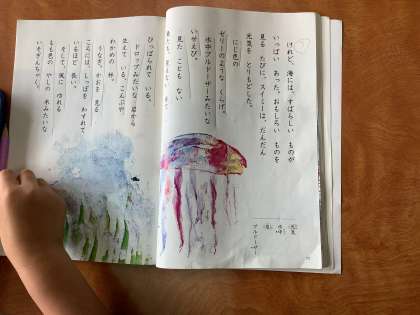 けれど、海には、すばらしい ものが
いっぱい あった。おもしろい ものを
見る たびに、スイミーは、だんだん
元気を とりもどした。
にじ色の
ゼリーのような くらげ。
水中ブルドーザーみたいな
いせえび。
見た ことも ない
ひっぱられて いる。
ドロップみたいな 岩から
生えて いる、こんぶや
わかめの 林。
うなぎ。かおを 見る
ころには、しっぽを わすれて
いるほど 長い。
そして、風に ゆれる
もも色の やしの 木みたいな
いそぎんちゃく。
元気
水中
ブルドーザー